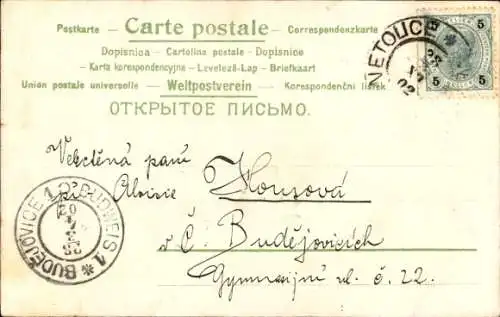 Postkarte - Carte postale - Correspondenzkarte
Dopisnica - Cartolina postale - Dopisnice
Karta korespondencyjna - Levelező-Lap - Briefkaart
Union postale universelle - Weltpostverein - Korespondenční lístek
ОТКРЫТОЕ ПИСЬМО.
NETOLIC
02
5 5
5 5
Velectěná paní
Aloisie Housová
v Č. Budějovicích
Gymnasijní ul. č. 22.
BUDĚJOVICE 1 BUDWEIS 1
02